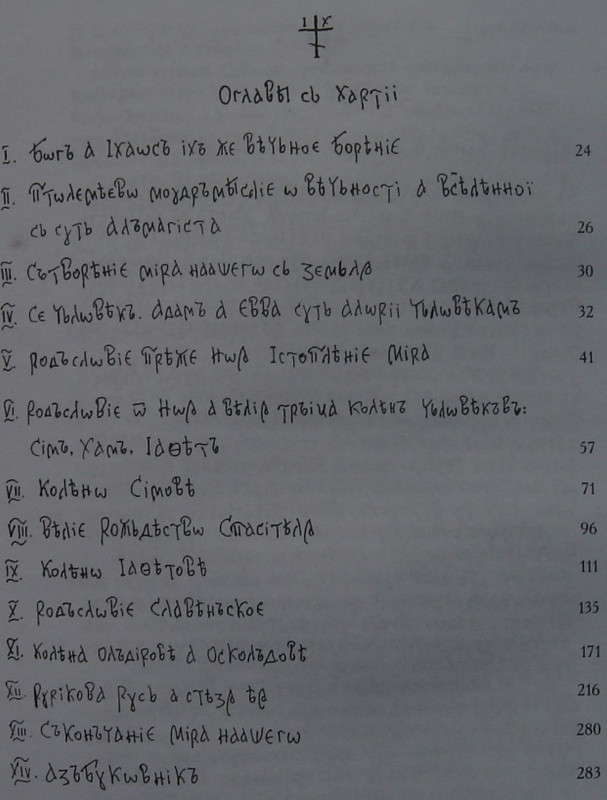 І Х
Оглавы сь Хартіі
I. Богъ а Іхаѡсъ іхъ же вѣчьное борѣніє 24
II. Птѡлемѣевѡ моудръмыѣсліе ѡ вѣчьності а всѣлѣнної
сь суть алъмагіста 26
III. Сътворѣніє міра наашегѡ сь ꙁемьлꙗ 30
IV. Се чьлѡвѣкъ. Адамъ а Евва суть алѡріі чьлѡвѣкамъ 32
V. Родъслѡвіє прѣже Ноꙗ Істоплѣніє міра 41
VI. Родъслѡвіє ѿ Ноꙗ а вѣліꙗ тръіца колѣнъ чьлѡвѣкъвъ:
Сімъ, Хамъ, Іаѳѣтъ 57
VII. Колѣнѡ Сімовѣ 71
VIII. Вѣліє рожьдѣствѡ Спасітѣлꙗ 96
IX. Колѣнѡ Іаѳѣтовѣ 111
X. Родъслѡвіє Славѣньскоє 135
XI. Колѣна Олъдіровѣ а Осколъдовѣ 171
XII. Руріковa Русь а стѣзꙗ ѣꙗ 216
XIII. Съконьчаніє міра наашегѡ 280
XIV. Азъбукѡвнікъ 283